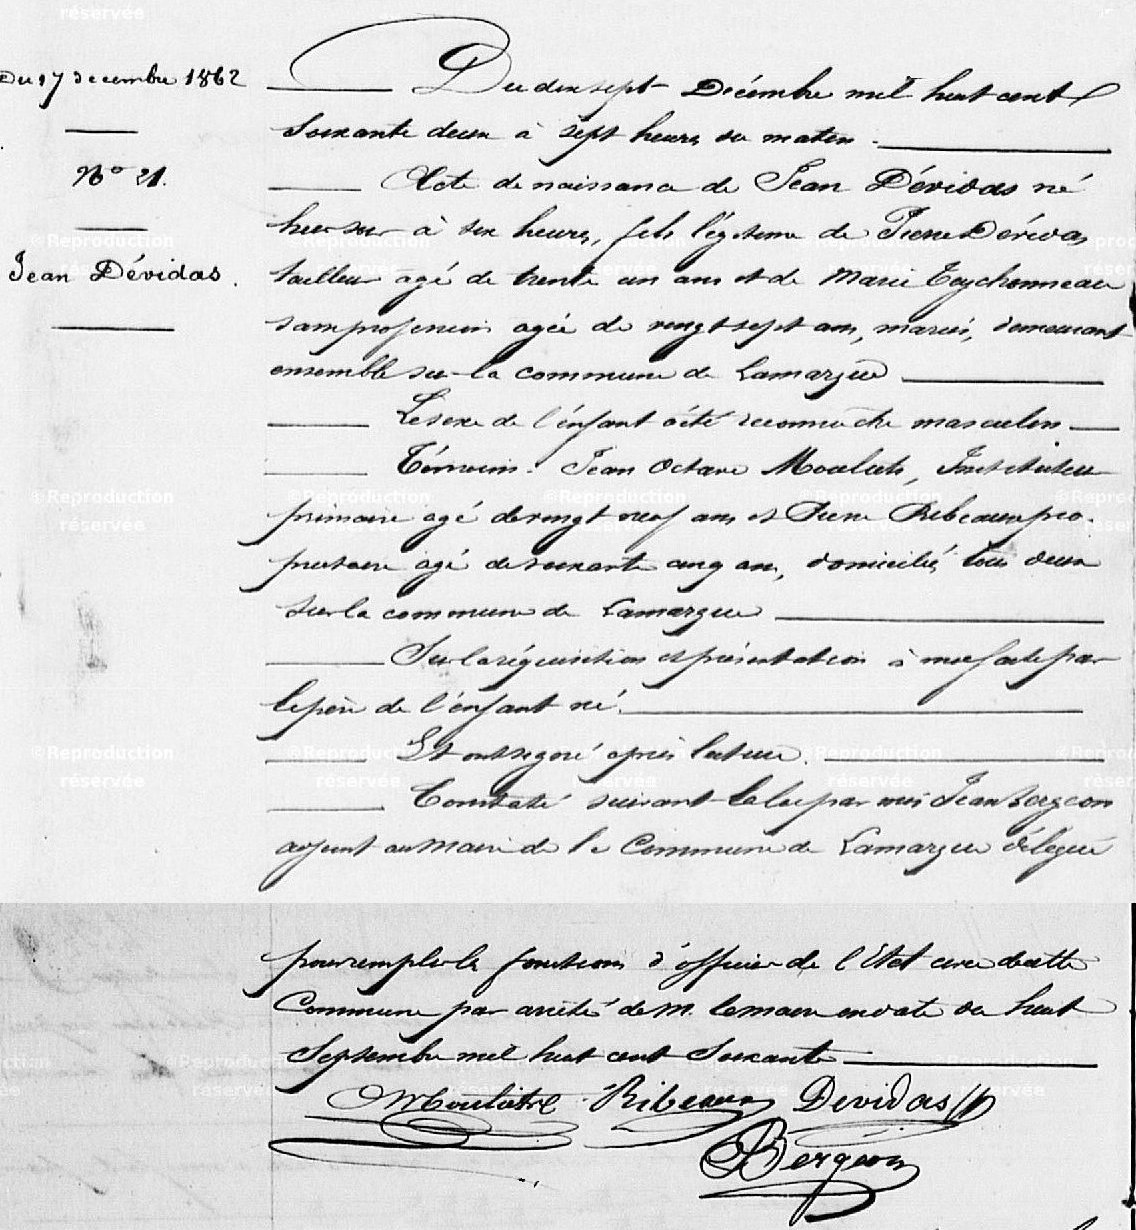 Du 17 décembre 1862
N° 21.
Jean Dévidas.
Du dix sept Décembre mil huit cent
soixante deux à sept heures du matin.
Acte de naissance de Jean Dévidas né
hier soir à six heures, fils légitime de Pierre Dévidas
tailleur agé de trente un ans et de Marie Teychonneau
sans profession agée de vingt sept ans, mariés, demeurant
ensemble sur la commune de Lamarque
Le sexe de l'enfant a été reconnu être masculin
Témoins. Jean Octave Moulats, Instituteur
primaire agé de vingt neuf ans et Pierre Ribeaux pro
priétaire agé de soixante cinq ans, domiciliés tous deux
sur la commune de Lamarque
Sur la réquisition et présentation à moi faite par
le père de l'enfant né.
Et ont signé après lecture.
Constaté suivant la loi par moi Jean Bergeon
adjoint au Maire de la Commune de Lamarque délégué
pour remplir les fonctions d'officier de l'Etat civil de cette
Commune par arrêté de M. le maire en date du huit
Septembre mil huit cent soixante
Ribeaux Devidas
Bergeon
©Reproduction
réservée